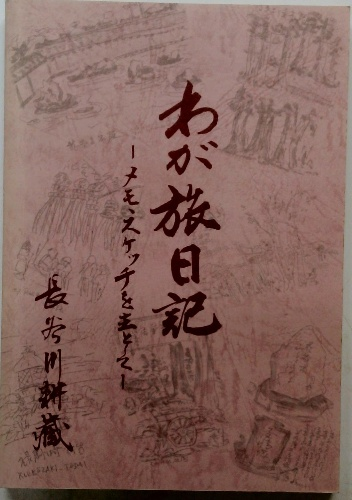 わが旅日記
ーメモ・スケッチを主としてー
長谷川耕蔵